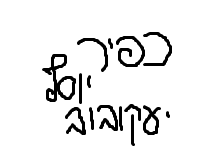 כפיר
יוסף
יעקובוב